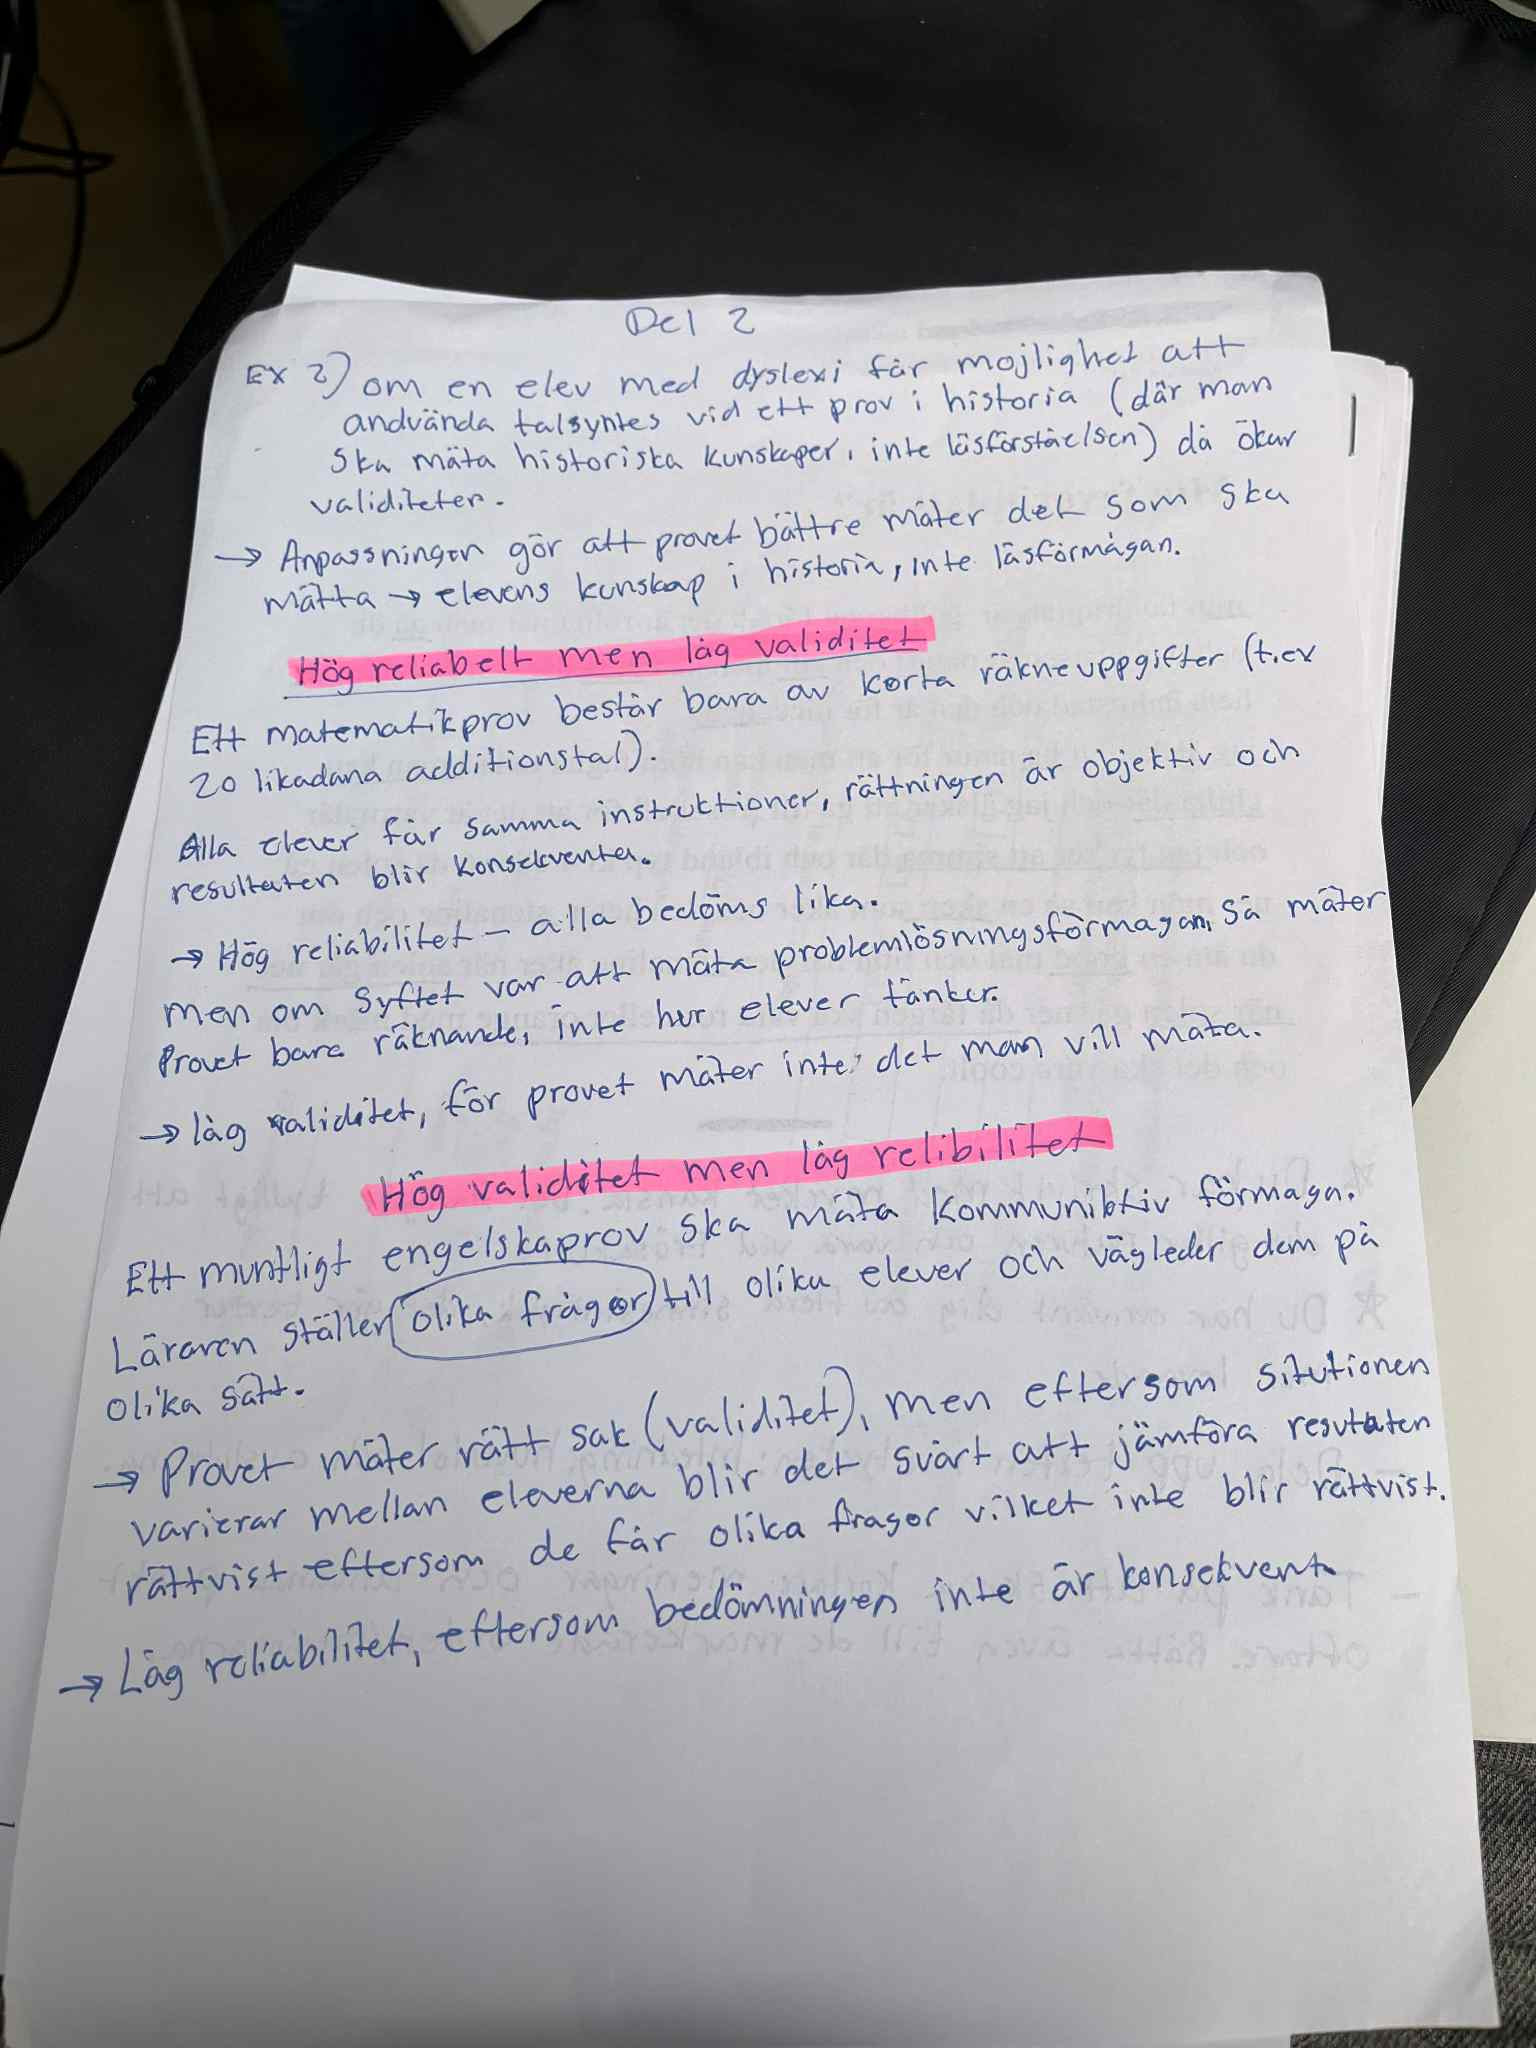 Del 2
Ex 2) om en elev med dyslexi får mojlighet att
andvända talsyntes vid ett prov i historia (där man
ska mäta historiska kunskaper, inte läsförståelsen) då ökar
validiteter.
→ Anpassningen gör att provet bättre mäter det som ska
mätta → elevens kunskap i historia, inte läsförmågan.
Hög reliabelt men låg validitet
Ett matematikprov består bara av korta räkneuppgifter (t.ex
20 likadana additionstal).
Alla elever får samma instruktioner, rättningen är objektiv och
resultaten blir konsekventa.
→ Hög reliabilitet – alla bedöms lika.
men om syftet var att mäta problemlösningsförmagan, så mäter
Provet bara räknande, inte hur elever tänker.
→ låg validitet, för provet mäter inte det man vill mäta.
Hög validitet men låg relibilitet
Ett muntligt engelskaprov ska mäta kommuniktiv förmaga.
Läraren ställer olika frågor till olika elever och vägleder dem på
olika sätt.
→ Provet mäter rätt sak (validitet), men eftersom situtionen
varierar mellan eleverna blir det svårt att jämföra resutaten
rättvist eftersom de får olika fragor vilket inte blir rättvist.
→ Låg reliabilitet, eftersom bedömningen inte är konsekvent.